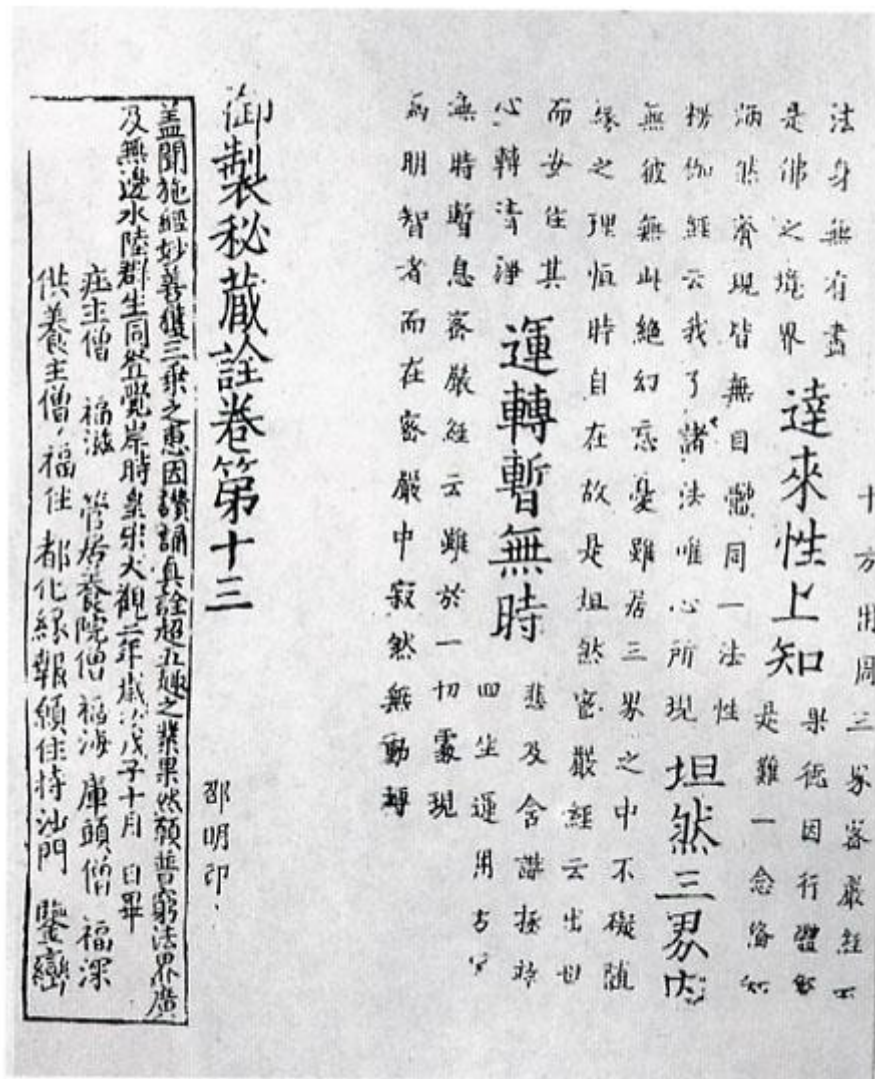 十方用周三界密嚴經云
法身無有盡
是佛之境界
達來性上知
果德因行體
是雖一念
炳然齊現皆無自體同一法性
楞伽經云我了諸法唯心所現
坦然三界内
無彼無此絶幻忘憂雖居三界之中不礙隨
緣之理恒時自在故是坦然密嚴經云出世
而安住其
心轉清淨
運轉暫無時
悲及含識拯
四生運用方
無時暫息密嚴經云雖於一切處現
為明智者而在密嚴中寂然無動轉
御製秘藏詮卷第十三
邵明印
盖聞施經妙善獲三乘之惠因讚誦真詮超五趣之業果然願普窮法界廣
及無邊水陸群生同登覺岸時皇宋大觀二年歲次戊子十月 日畢
庄主僧 福滋 管居養院僧 福海 庫頭僧 福深
供養主僧 福住 都化緣報願住持沙門 鑒巒